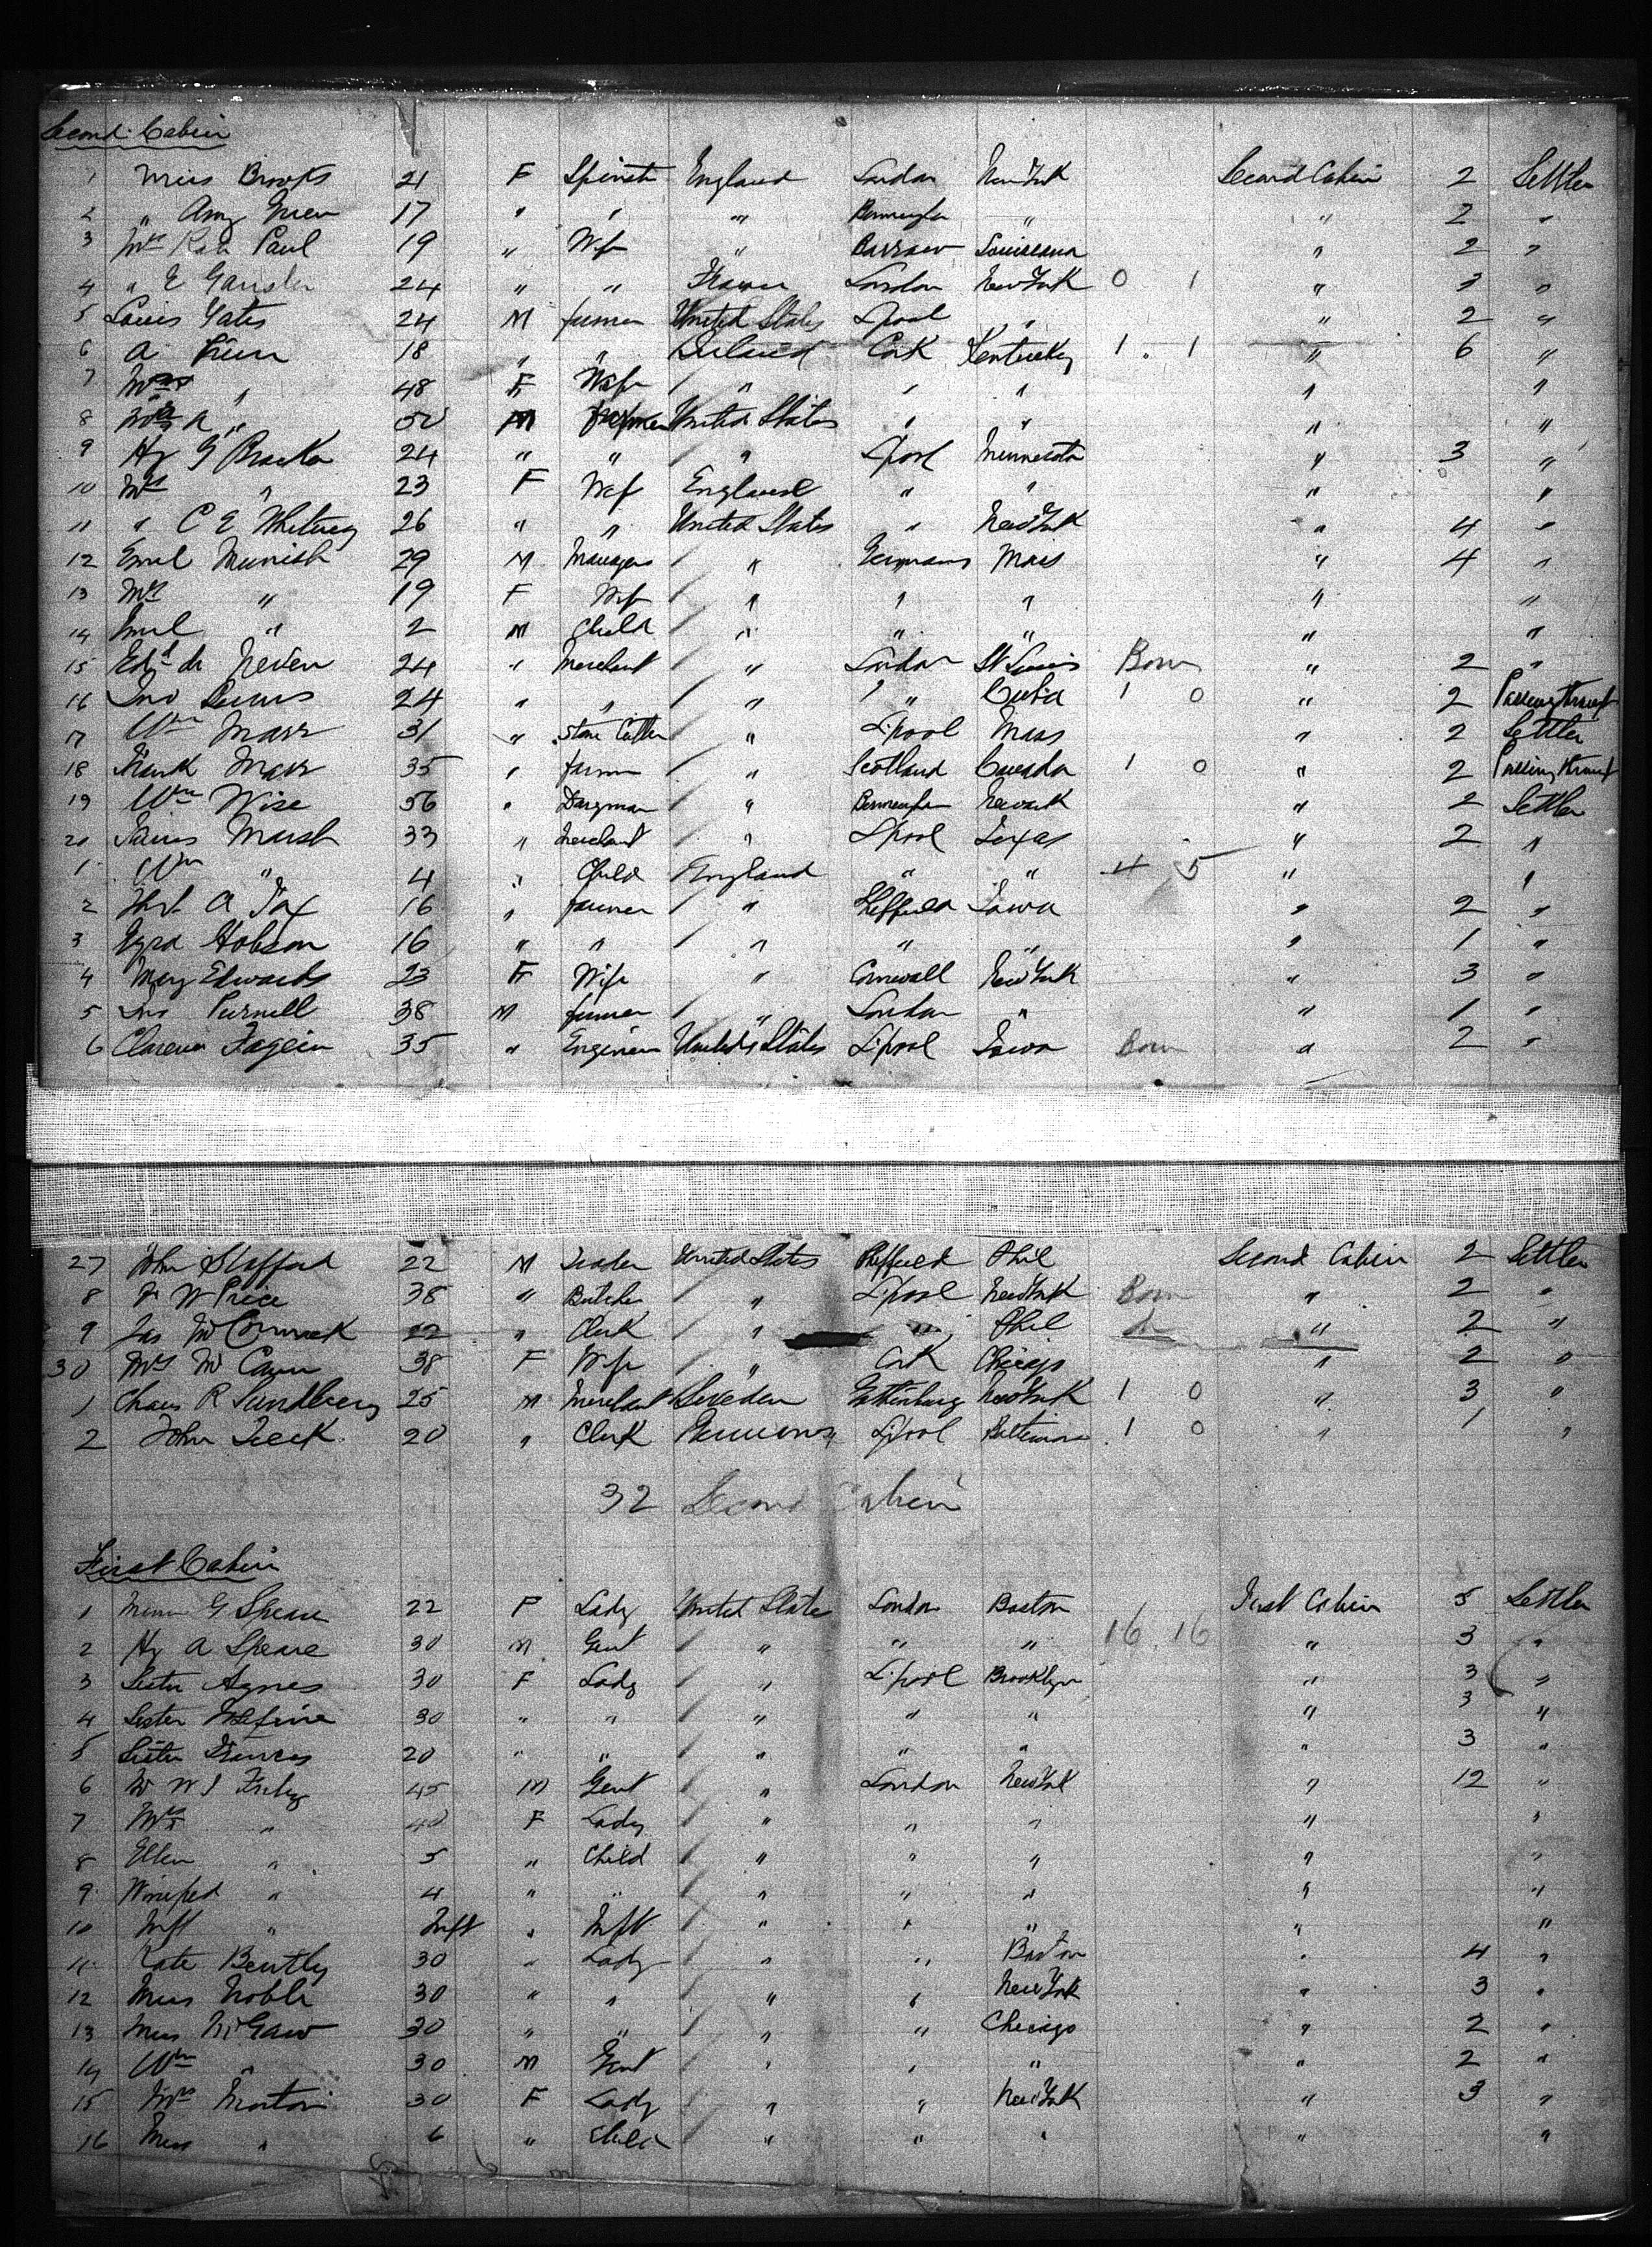 Second Cabin
1 Miss Brooks 21 F Spinster England London New York Second Cabin 2 Settler
2 " Amy Green 17 " " " " " 2 "
3 Mrs Paul 19 " Wife " Barrow Louisiana " 2 "
4 " E 24 " " London New York 0 1 " "
5 Louis Yates 24 M farmer United States L'pool " " 2 "
6 A 18 " " Ireland Cork Kentucky 1 . 1 " 6 "
7 Mrs " 48 F Wife " " " " "
8 A " 50 M United States " " " "
9 Hy G 24 " " " L'pool Minnesota " 3 "
10 Mrs " 23 F Wife England " " " "
11 " C E Whitney 26 " " United States " New York " 4 "
12 Emil Munich 29 M Manager " Germany Mass " 4 "
13 Mrs " 19 F Wife " " " " "
14 Emil " 2 M Child " " " " "
15 Edwd de 24 " Merchant " London St Louis Born " 2 "
16 Jno 24 " " " " Cuba 1 0 " 2 Passing through
17 Wm Marr 31 " Stone Cutter " L'pool Mass " 2 Settler
18 Frank Marr 35 " farmer " Scotland Canada 1 0 " 2 Passing through
19 Wm Wise 56 " " Newark " 2 Settler
20 James Marsh 33 " Merchant " L'pool Texas " 2 "
1 Wm " 4 " Child England " " 4 5 " "
2 A Fox 16 " farmer " Sheffield Iowa " 2 "
3 Hobson 16 " " " " " " 1 "
4 Mary Edwards 23 F Wife " Cornwall New York " 3 "
5 Jno Purnell 38 M farmer " London " " 1 "
6 Clarence Fagein 35 " Engineer United States L'pool Iowa Born " 2 "
27 John Stafford 22 M United States Sheffield Phil Second Cabin 2 Settler
8 W Price 38 " Butcher " L'pool New York Born " 2 "
9 Jas McCormack 22 " Clerk " " Phil " 2 "
30 Mrs McCann 38 F Wife " Cork Chicago " 2 "
1 Chas R Sundberg 25 M Merchant Sweden Gothenburg New York 1 0 " 3 "
2 John Teck 20 " Clerk Germany L'pool Baltimore 1 0 " 1 "
32 Second Cabin
First Cabin
1 G Speare 22 F Lady United States London Boston First Cabin 5 Settler
2 Hy A Speare 30 M Gent " " " 16 . 16 " 3 "
3 Sister Agnes 30 F Lady " L'pool Brooklyn " 3 "
4 Sister 30 " " " " " " 3 "
5 Sister Frances 20 " " " " " " 3 "
6 Mr W J 45 M Gent " London New York " 12 "
7 Mrs " 40 F Lady " " " " "
8 Ellen " 5 " Child " " " " "
9 Winifred " 4 " " " " " " "
10 Inft " Inft " Inft " " " " "
11 Kate Bently 30 " Lady " " Boston " 4 "
12 Miss Noble 30 " " " " New York " 3 "
13 Miss McGaw 30 " " " " Chicago " 2 "
14 Wm " 30 M Gent " " " " 2 "
15 Mrs Morton 30 F Lady " " New York " 3 "
16 Miss " 6 " Child " " " " "